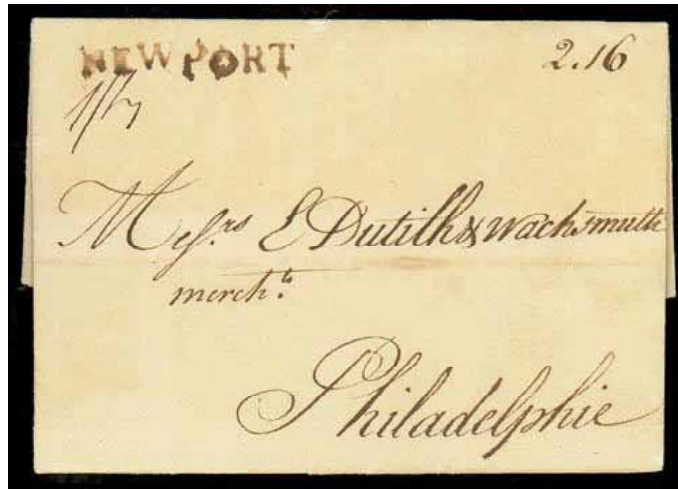 NEWPORT 2.16
1/7
Messrs E Dutilh & Wachsmuth
merchts
Philadelphie